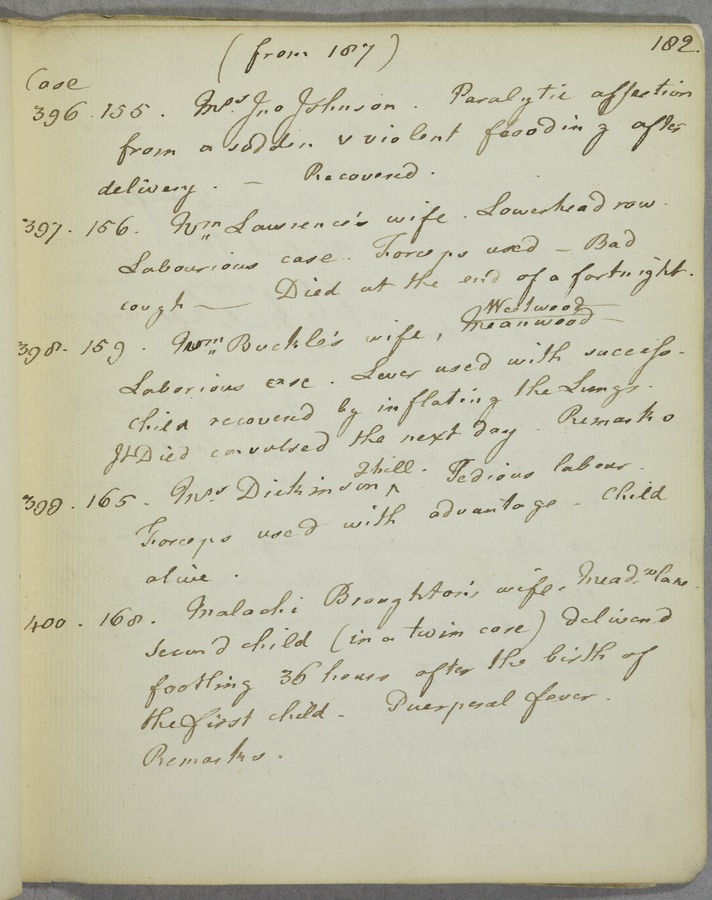 (from 187) 182.
Case
396. 155. Mrs. Jno Johnson. Paralytic affection
from a sudden & violent flooding after
delivery. — Recovered.
397. 156. Wm Lawrence's wife. Lowerhead row.
Labourious case. Forceps used — Bad
cough — Died at the end of a fortnight.
Westwood
398. 159. Wm Buckle's wife, Meanwood —
Laborious case. Lever used with success.
Child recovered by inflating the Lungs.
It Died convulsed the next day. Remarks
hill.
399. 165. Mrs Dickinson ^ Tedious labour.
Forceps used with advantage — Child
alive.
400. 168. Malachi Broughton's wife. Mead.w lane.
second child (in a twin case) deliverd
footling 36 hours after the birth of
the first child — Puerperal fever.
Remarks.